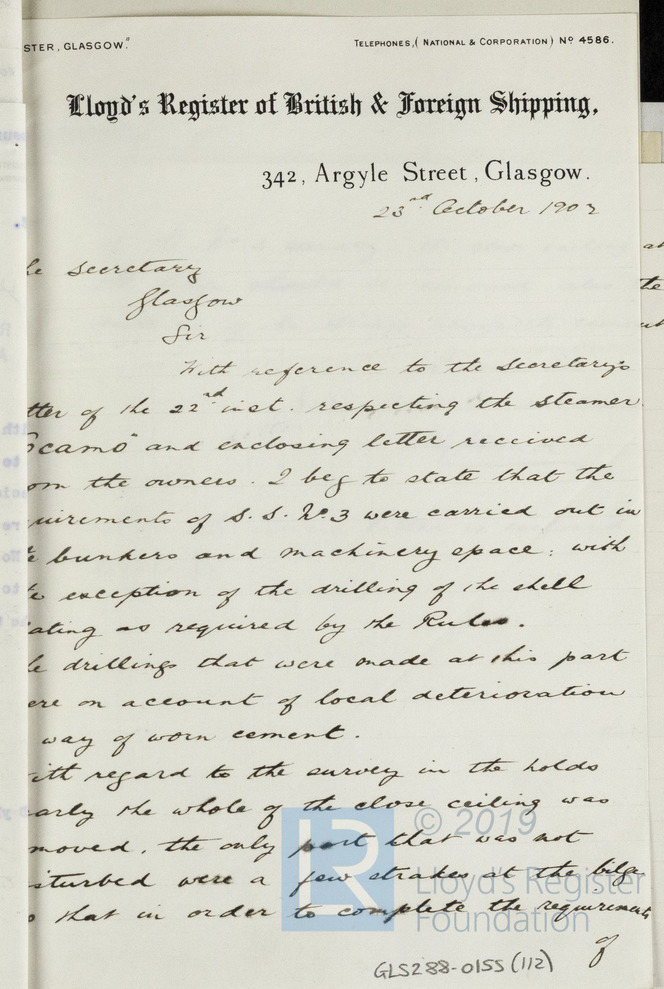 STER, GLASGOW."
TELEPHONES, (NATIONAL & CORPORATION) Nº 4586.
Lloyd's Register of British & Foreign Shipping,
342, Argyle Street, Glasgow.
23nd October 1902
he Secretary
Glasgow
Sir
With reference to the Secretary's
tter of the 22nd inst. respecting the steamer
ocamo" and enclosing letter received
om the owners. I beg to state that the
uirements of S.S. No. 3 were carried out in
e bunkers and machinery space; with
e exception of the drilling of the shell
ating as required by the Rules.
he drillings that were made at this part
ere on account of local deterioration
way of worn cement.
ith regard to the survey in the holds
early the whole of the close ceiling was
moved, the only part that was not
isturbed were a few strakes at the bilge
o that in order to complete the requirements
of
© 2019
Lloyd's Register
Foundation
LR
GLS288-0155 (112)